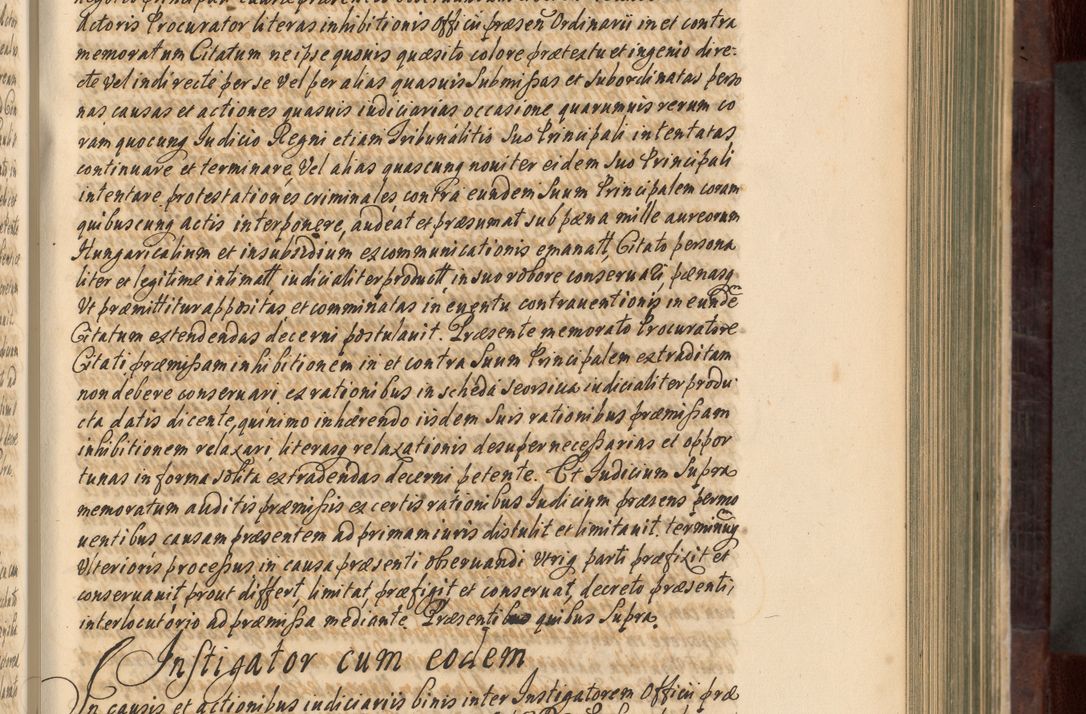 Actoris Procurator literas inhibitionis Officii præsen Ordinarii in et contra
memoratum Citatum ne ipse quovis quæsito colore prætextu et ingenio dire-
cte vel indirecte per se vel per alias quasvis Submissas et Subordinatas perso
nas causas et actiones quasvis iudiciarias occasione quarumvis rerum co
ram quocunq Iudicio Regni etiam Tribunalitio Suo Principali intentatas
continuare et terminare, Vel alias quascunq noviter eidem Suo Principali
intentare protestationes criminales contra eundem Suum Principalem coram
quibuscunq actis interponere, audeat et præsumat sub pæna mille aureorum
Hungaricalium et in subsidium excommunicationis emanatt, Citato persona
liter et legitime intimatt iudicialiter productt in suo robore conservari, pænasq
Ut præmittitur appositas et comminatas in eventu contraventionis in eunde
Citatum extendendas decerni postulavit. Præsente memorato Procuratore
Citati præmissam inhibitionem in et contra Suum Principalem extraditam
non debere conservari ex rationibus in scheda seorsiva iudicialiter produ
cta datis dicente, quinimo inhærendo iisdem Suis rationibus præmissam
inhibitionem relaxari, literasq relaxationis desuper necessarias et oppor
tunas in forma solita extradendas decerni petente. Et Iudicium Supra
memoratum auditis præmissis ex certis rationibus Iudicium præsens permo
ventibus causam præsentem ad primam iuris distulit et limitavit. terminumq
Ulterioris processus in causa præsenti observandi utriq parti præfixit et
conservavit prout differt, limitat, præfigit et conservat, decreto præsenti,
interlocutorio ad præmissa mediante Præsentibus quibus Supra.
Instigator cum eodem
In causis et actionibus iudiciariis binis inter Instigatorem Officii præ